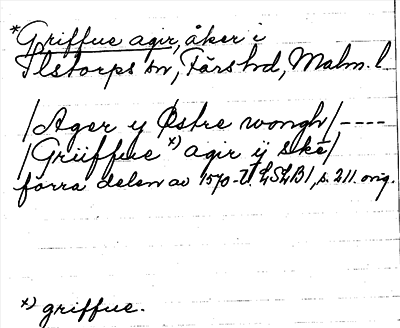 *Griffue agir, åker i
Ilstorps sn, Färs hd, Malm. l.
/Ager y Østre wongh/----
/Grüffue x) agir ÿ skē/
förra delen av 1570-t. LSLB1, s. 211. orig.
x) griffue.